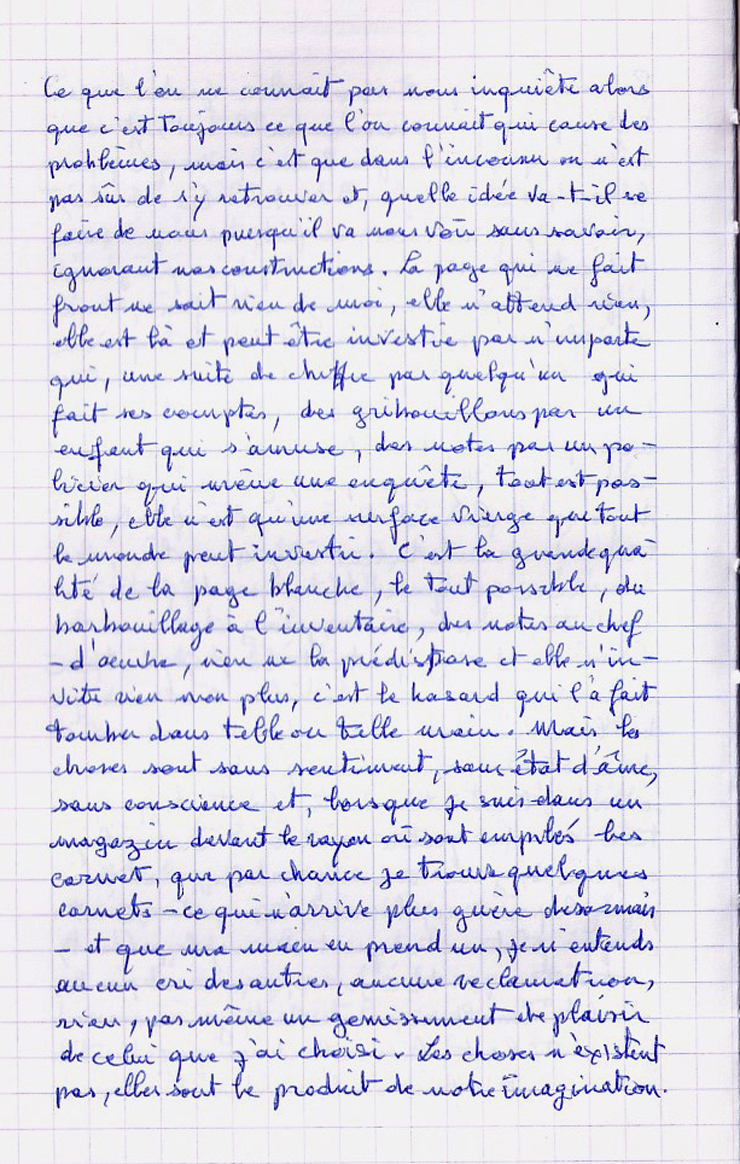 Ce que l'on ne connaît pas nous inquiète alors
que c'est toujours ce que l'on connait qui cause des
problèmes, mais c'est que dans l'inconnu on n'est
pas sûr de s'y retrouver et, quelle idée va-t-il se
faire de nous puisqu'il va nous voir sans savoir,
ignorant nos constructions. La page qui me fait
front ne sait rien de moi, elle n'attend rien,
elle est là et peut être investie par n'importe
qui, une suite de chiffre par quelqu'un qui
fait ses comptes, des gribouillons par un
enfant qui s'amuse, des notes par un po-
licier qui mène une enquête, tout est pos-
sible, elle n'est qu'une surface vierge que tout
le monde peut investir. C'est la grande qua
lité de la page blanche, le tout possible, du
barbouillage à l'inventaire, des notes au chef
-d'oeuvre, rien ne la prédispose et elle n'in-
vite rien non plus, c'est le hasard qui l'a fait
tomber dans telle ou telle main. Mais les
choses sont sans sentiment, sans état d'âme,
sans conscience et, lorsque je suis dans un
magazin devant le rayon où sont empilés les
carnet, que par chance je trouve quelques
carnets - ce qui n'arrive plus guère desormais
- et que ma main en prend un, je n'entends
aucun cri des autres, aucune reclamation,
rien, pas même un gemissement de plaisir
de celui que j'ai choisi. Les choses n'existent
pas, elles sont le produit de notre imagination.